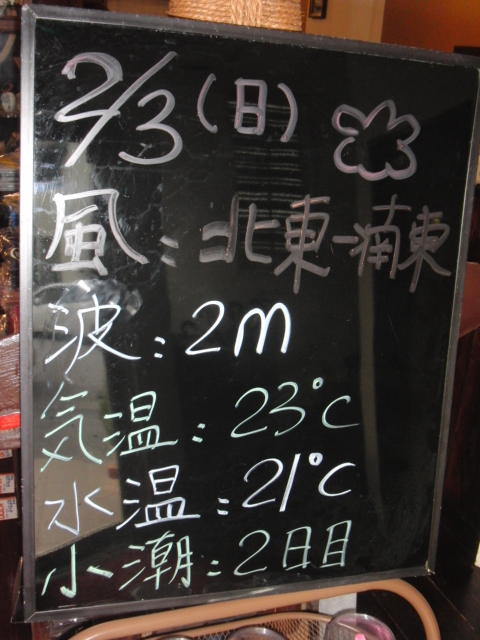 2/3(日)
風:北東-湳東
波:2m
気温:23℃
水温:21℃
小潮:2日目